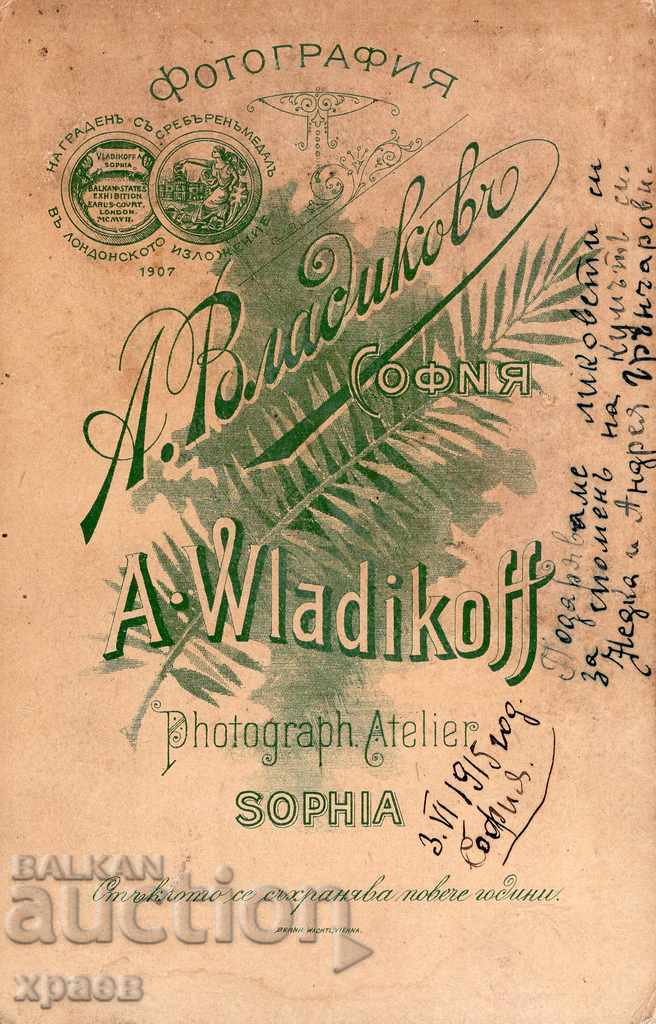 ФОТОГРАФИЯ
НАГРАДЕНЪ СЪ СРЕБЪРЕНЪ МЕДАЛЪ
ВЪ ЛОНДОНСКОТО ИЗЛОЖЕНИЕ
1907
VLADIKOFF A
SOPHIA
BALKAN STATES
EXHIBITION
EARLS-COURT,
LONDON.
MCMVII.
А. Владиковъ
СОФИЯ
A. Wladikoff
Photograph. Atelier
SOPHIA
Стъклото се съхранява повече години.
BERNH. WACHTL, VIENNA.
Подаряваме ликовети си
за споменъ на кумътѣ си.
Недка и Андрея Грънчарови.
3.VI 1915 год.
София.
BALKAN
auction
храов